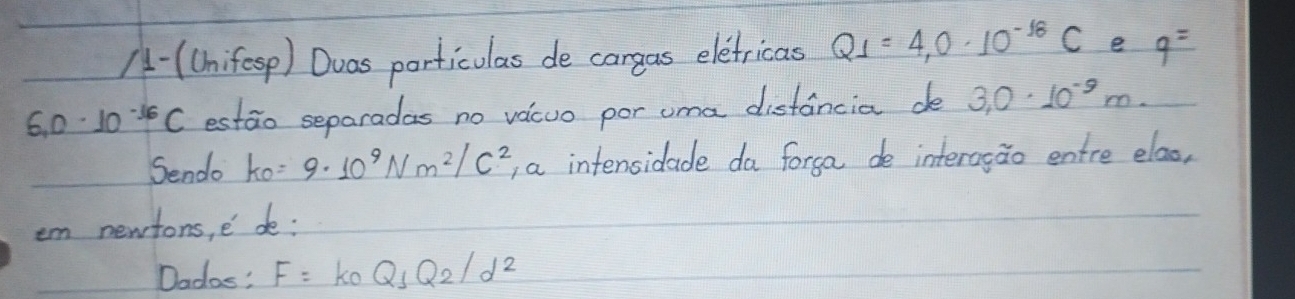 11-(Unifesp) Duas partículas de cargas elétricas Q1 = 4,0 · 10⁻¹⁶ C e q =
6,0 · 10⁻¹⁶ C estão separadas no vácuo por uma distância de 3,0 · 10⁻⁹ m.
Sendo k0 = 9 · 10⁹ Nm²/C², a intensidade da força de interação entre elas,
em newtons, é de:
Dados: F = k0 Q1 Q2/d²